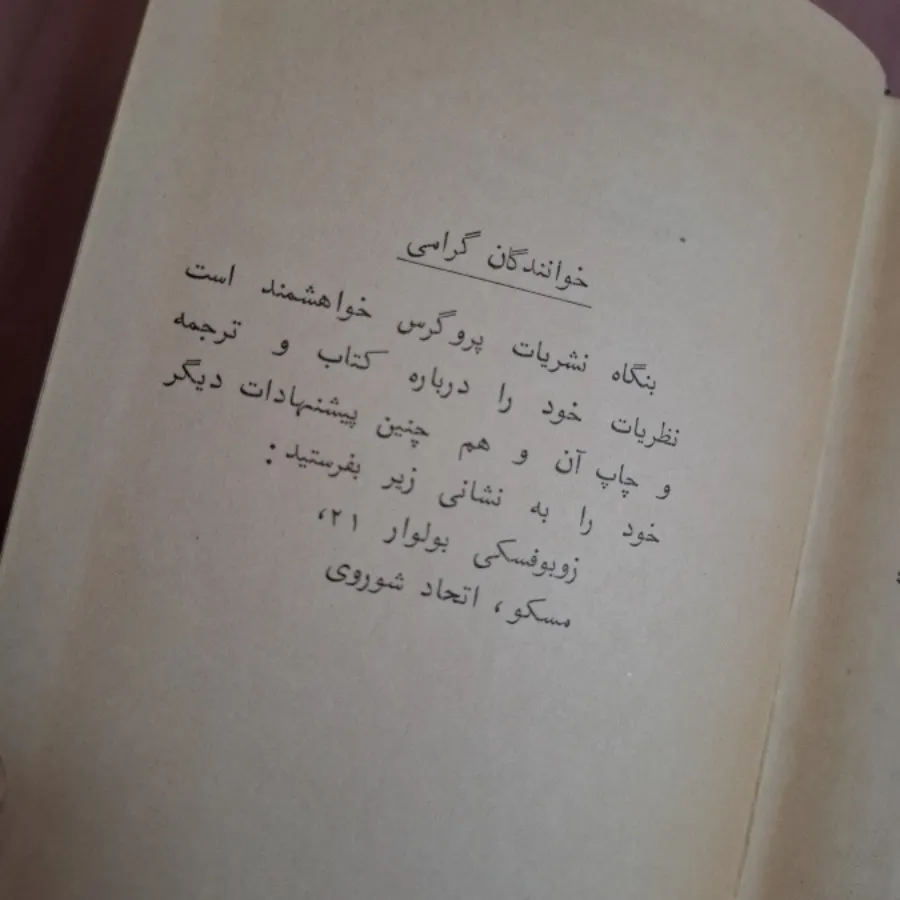 خوانندگان گرامی
بنگاه نشریات پروگرس خواهشمند است
نظریات خود را درباره کتاب و ترجمه
و چاپ آن و هم چنین پیشنهادات دیگر
خود را به نشانی زیر بفرستید:
زوبوفسکی بولوار ۲۱،
مسکو، اتحاد شوروی